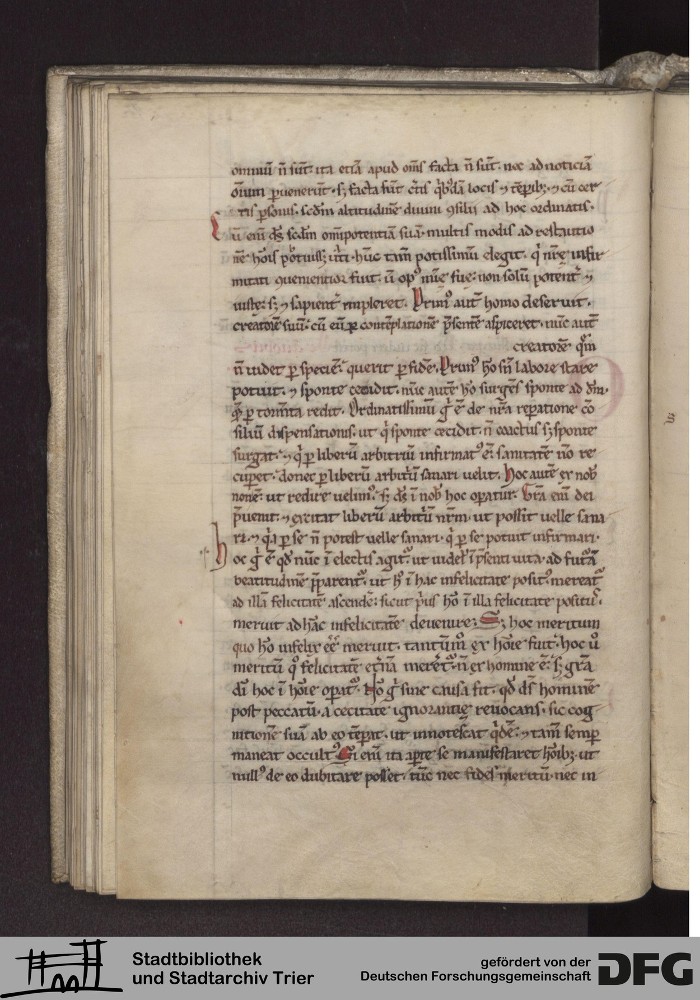 omniū n̄ sunt: ita etiā apud om̄s facta n̄ sunt. nec ad noticiā
om̄ium ꝑuenerūt. sꝫ facta sunt c̄tis q̇bꝰdā locis ⁊ tēpibꝫ ⁊ cū cer
tis ꝑsonis. scdm̄ altitudinē diuini ꝯsilii ad hoc ordinatis.
ū em̄ dš̄ scdm̄ om̄ipotentiā suā. multis modis ad restauratio
nē hōis potuissꝫ uti. hūc tam̄ potissimū elegit. q̇ nrē infir
mitati ꝯuenientior fuit. ū opꝰ suę fuę non solū potent̄ ⁊
iuste: sꝫ ⁊ sapient̄ impleret. Primꝰ aut̄ homo deseruit.
creatorē suū: cū eū ꝑ contēplationē p̄sentē aspiceret. nūc aut̄
creatorē quē
n̄ uidet ꝑ speciē. querit ꝑ fidē. Primꝰ hō sin̄ labore stare
potuit. ⁊ sponte cecidit. nūc autē hō surgēs sponte ad dm̄.
redit. Ordinatissimū ḡ ē de nrā reparatione cō
siliū dispensationis. ut q̇ sponte cecidit. n̄ coactus sꝫ sponte
surgat. ⁊ q̇ ꝑ liberū arbitriū infirmatꝰ ē: sanitatē nō re
cuꝑet. donec ꝑ liberū arbitriū sanari uelit. Hoc autē ex nob̄
non ē: ut redire uelimꝰ. sꝫ dš̄ ī nob̄ hoc operatur. Grā em̄ dei
p̄uenit. ⁊ excitat liberū arbitriū nrm̄. ut possit uelle sana
ri. ⁊ q̇a ꝑ se n̄ potest uelle sanari. q̇ ꝑ se potuit infirmari.
hoc ḡ ē qd̄ nūc ī electis agitꝰ. ut uidelꝫ ī p̄senti uita. ad futurā
beatitudinē p̄parentꝰ. ut hō ī hac infelicitate positꝰ. mereatꝰ
ad illā felicitatē ascendē: sicut pⁱus hō ī illa felicitate positus.
meruit ad hāc infelicitatē deuenire. Sꝫ hoc meritum
quo hō infelix eē meruit. tantūm̄ ex hōie fuit. hoc ū
meritū qͦ felicitatē etnā meretꝰ. n̄ ex homine ē: sꝫ grā
dī hoc ī hōie operatꝰ. Nō ḡ sine causa fit. qd̄ dš̄ hominē
post peccatū. a cecitate ignorantię reuocans. sic cog
nitionē suā ab eo tēꝑat. ut innotescat q̇dē: ⁊ tam̄ semꝑ
maneat occultꝰ. Si em̄ ita aꝑte se manifestaret hōibꝫ. ut
nullꝰ de eo dubitare posset. tūc nec fides meritū. nec in
Stadtbibliothek
und Stadtarchiv Trier
gefördert von der
Deutschen Forschungsgemeinschaft
DFG